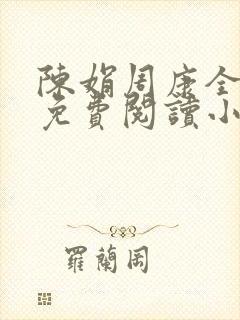 陳娟周康全
免費閱讀小
羅蘭岡